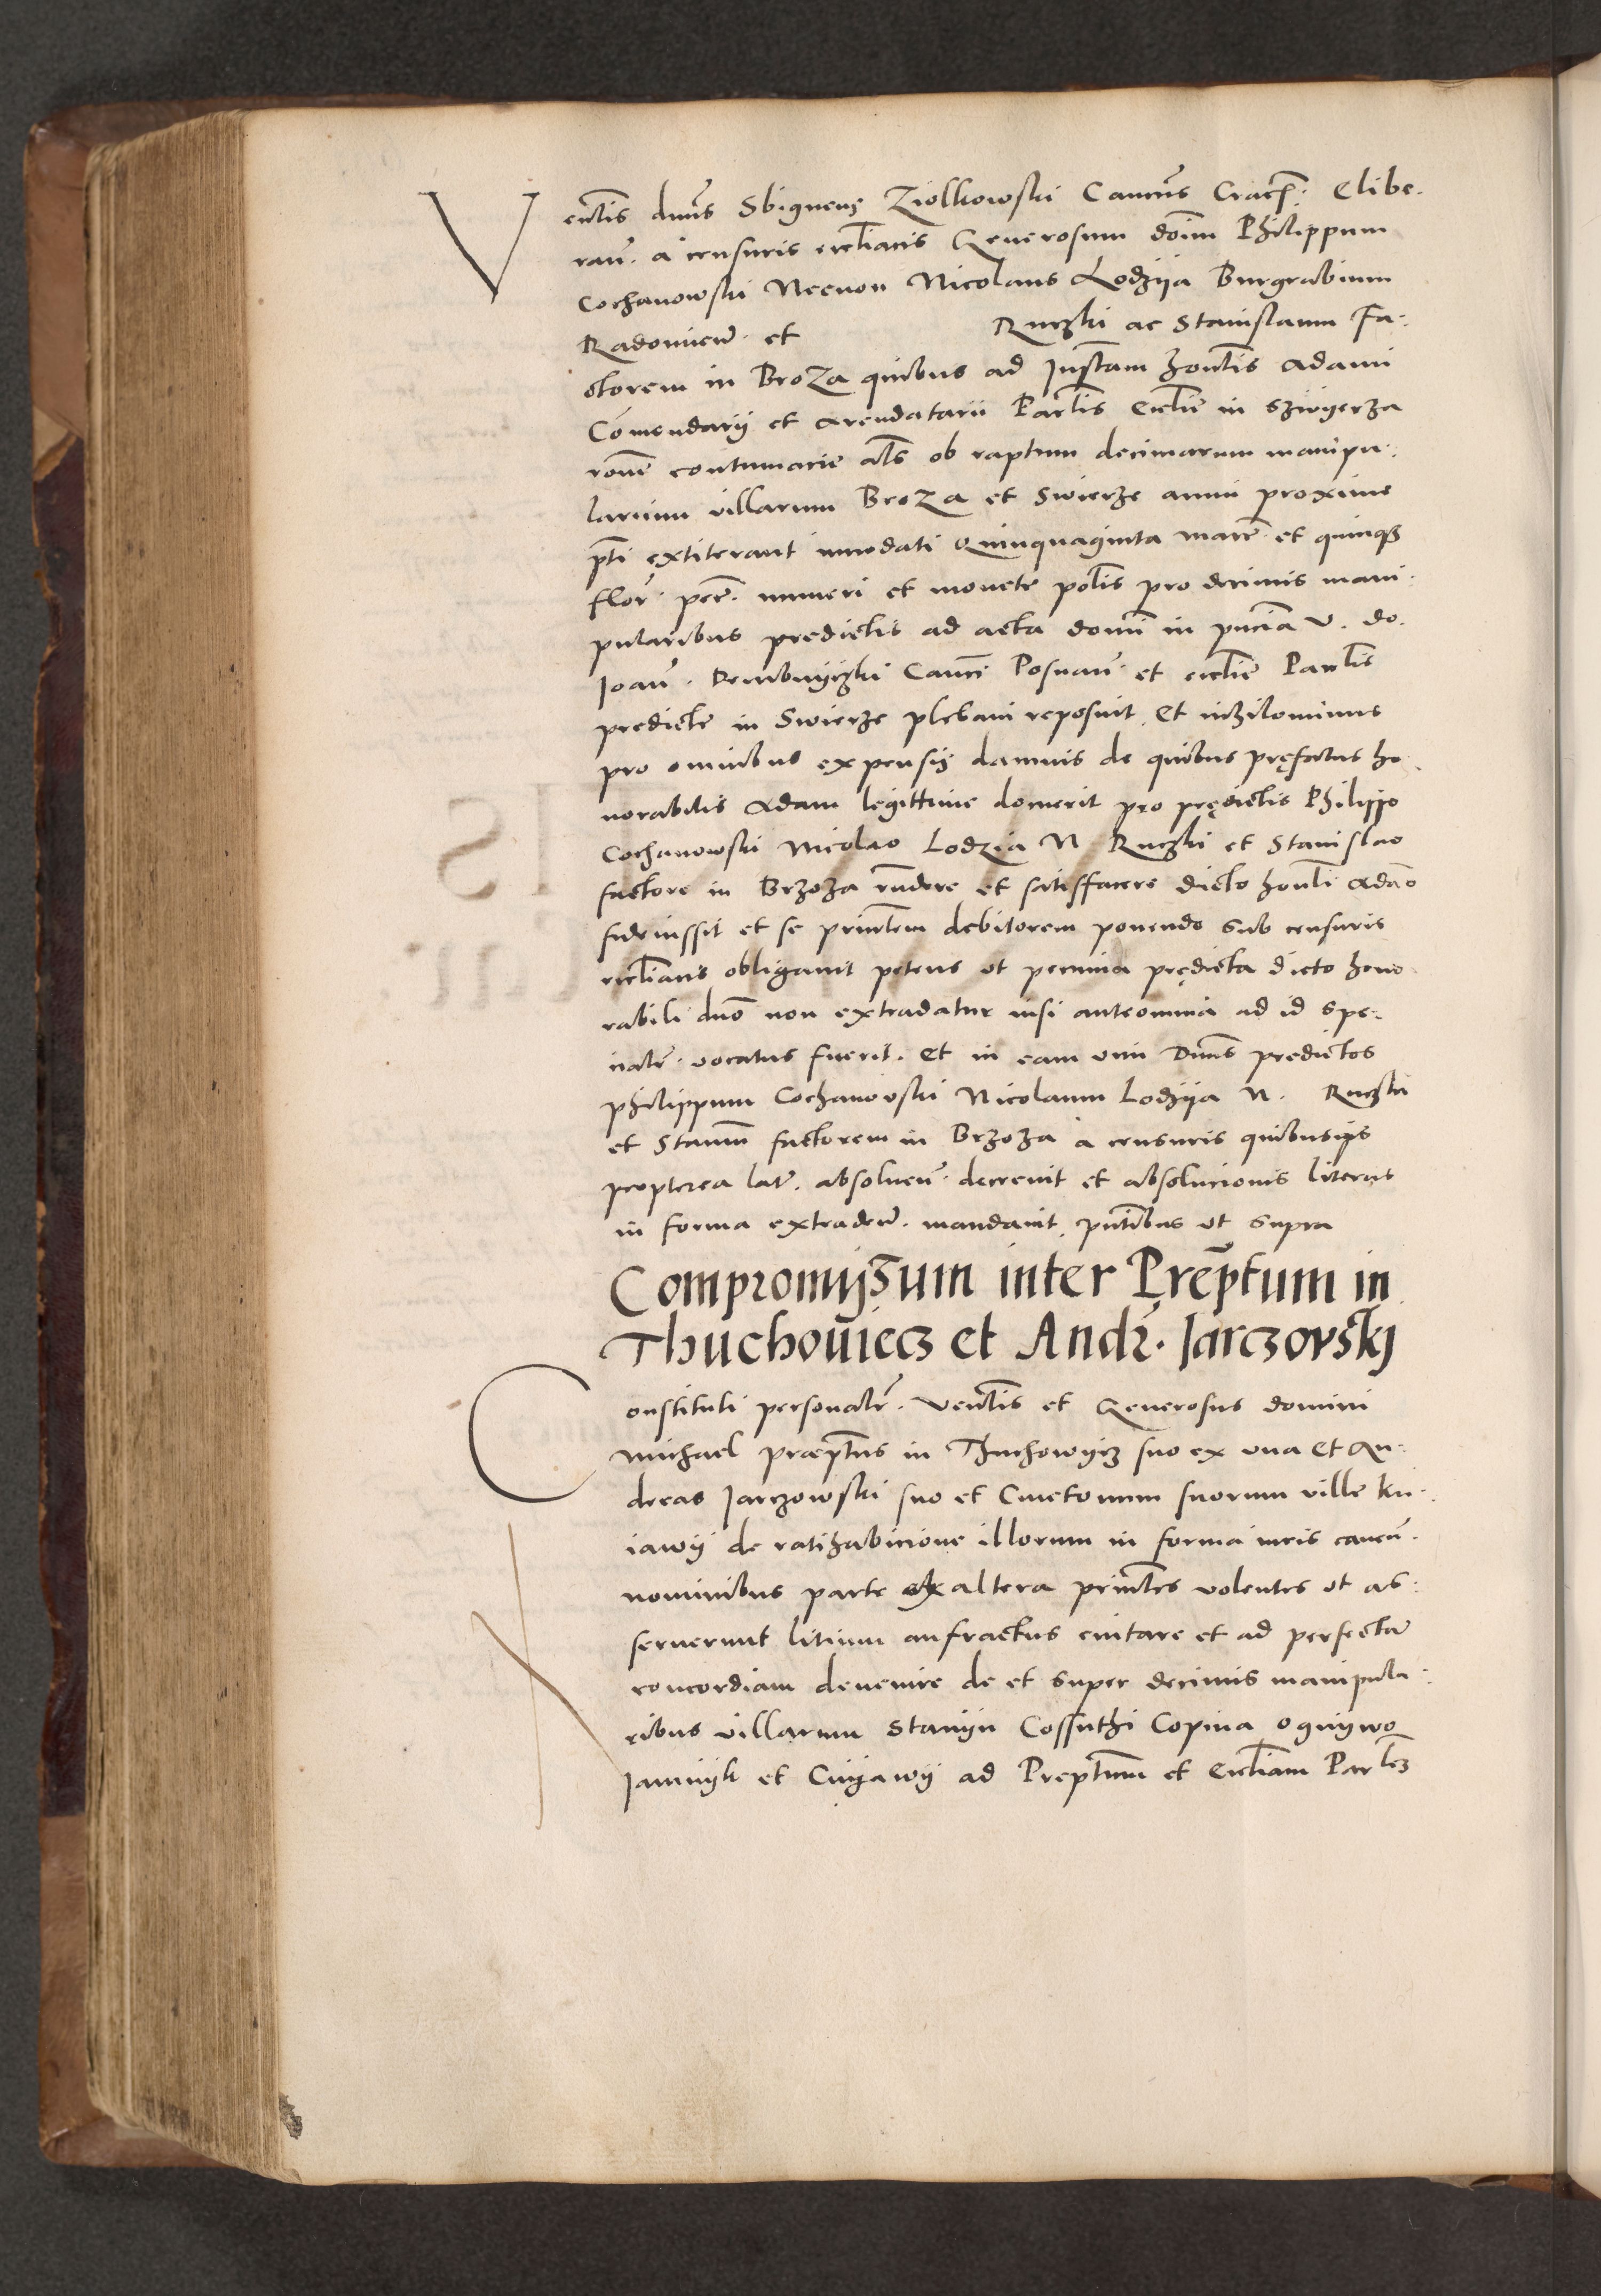 Venlis dnus Sbigneus Ziolkowski Cancus Cracs. Elibe.
ran. a censuris eccliacis Generosum doim Philippum
Cochanowski Necnon Nicolaus Lodzya Burgrabium
Radomien. et Ruczki ac Stanislaum Fa.
ctorem in BroZa quibus ad Instam honlis Adami
Comendarij et Arendatarij Parlis Ecclie in Szwyerza
rone contumacie als ob raptum decimarum manipu.
larium villarum BroZa et Swierze anni proxime
pti extiterant innodati Quinquaginta marc. et quinqz
flor. pec. numeri et monete polis pro decimis mani.
pularibus predictis ad acta domi in pncia V. do.
Joan. Dembnyczki Canci Posnan. et ecclie Parlis
predicte in Swierze plebani reposuit, Et nihilominus
pro omnibus expensis damnis de quibus prefatus ho.
norabilis Adam legittime docuerit pro predictis Philippo
Cochanowski Nicolao Lodzia N Ruczki et Stanislao
factore in Brzoza rndere et satisffacere dicto honli Adamo
fideiussit et se princlem debitorem ponendo Sub censuris
ecclianis obligavit petens ut pecunia predicta dicto hono.
rabili dno non extradatur nisi anteomnia ad id spe.
cialr. vocatus fuerit. Et in eam vim Dnus predictos
Philippum Cochanowski Nicolaum Lodzya N. Ruczki
et Stanum factorem in Brzoza a censuris quibusvis
propterea lat. absolven. decrevit et absolucionis literas
in forma extraden. mandavit, pntibus ut supra
Compromyssum inter Preptum in
Thuchoviecz et Andr. Jarczovskj
Constituti personalr. Venlis et Generosus domini
Michael praeptus in Thuchowycz suo ex una Et An.
dreas Jarczowski suo et Cmetonum suorum ville Ku.
iawy de ratihabicione illorum in forma iuris caven.
nominibus parte ex altera princles volentes ut as.
seruerunt litium anfractus evitare et ad perfectam
concordiam devenire de et super decimis manipula.
ribus villarum Stanyn Cossuthi Copina Ognywo
Jamnyk et Cuyawy ad Preptum et Eccliam Parlez